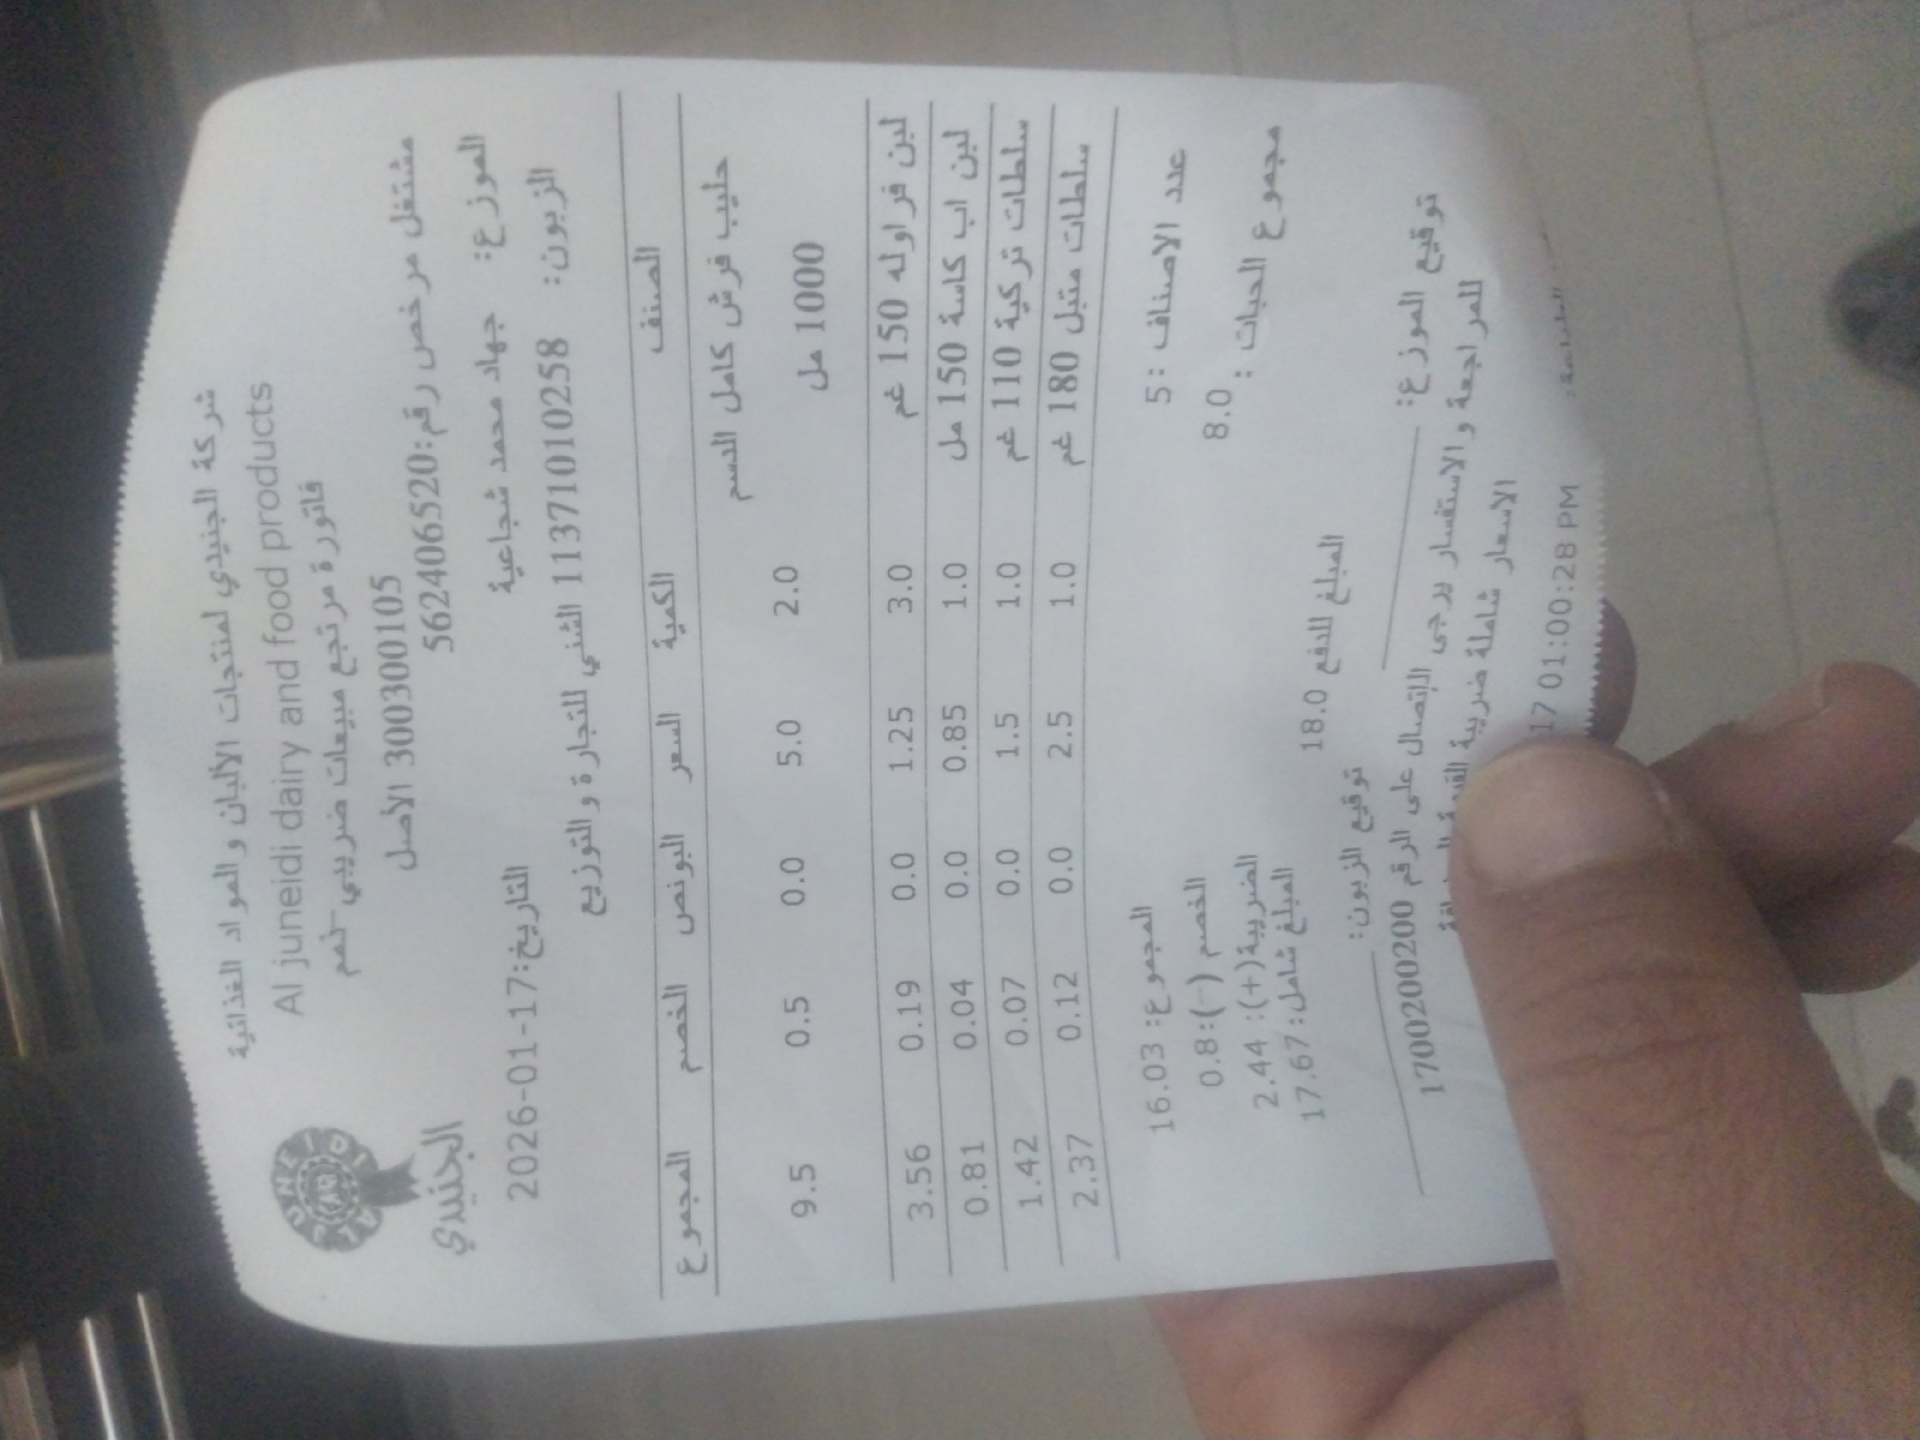 شركة الجنيدي لمنتجات الألبان و المواد الغذائية
Al juneidi dairy and food products
فاتورة مرتجع مبيعات ضريبي-ذمم
300300105 الأصل
مشتغل مرخص رقم:562406520
AL JUNEIDI
الجنيدي
الموزع: جهاد محمد شجاعية
التاريخ:2026-01-17
الزبون: 11371010258 الشني للتجارة و التوزيع
الصنف الكمية السعر البونص الخصم المجموع
حليب فرش كامل الدسم 1000 مل 2.0 5.0 0.0 0.5 9.5
لبن فراوله 150 غم 3.0 1.25 0.0 0.19 3.56
لبن اب كاسة 150 مل 1.0 0.85 0.0 0.04 0.81
سلطات تركية 110 غم 1.0 1.5 0.0 0.07 1.42
سلطات متبل 180 غم 1.0 2.5 0.0 0.12 2.37
عدد الاصناف :5 المجموع: 16.03
مجموع الحبات : 8.0 الخصم (-):0.8
الضريبة(+): 2.44
المبلغ للدفع 18.0 المبلغ شامل: 17.67
توقيع الموزع: توقيع الزبون:
للمراجعة و الاستفسار يرجى الاتصال على الرقم 1700200200
الاسعار شاملة ضريبة
17 01:00:28 PM